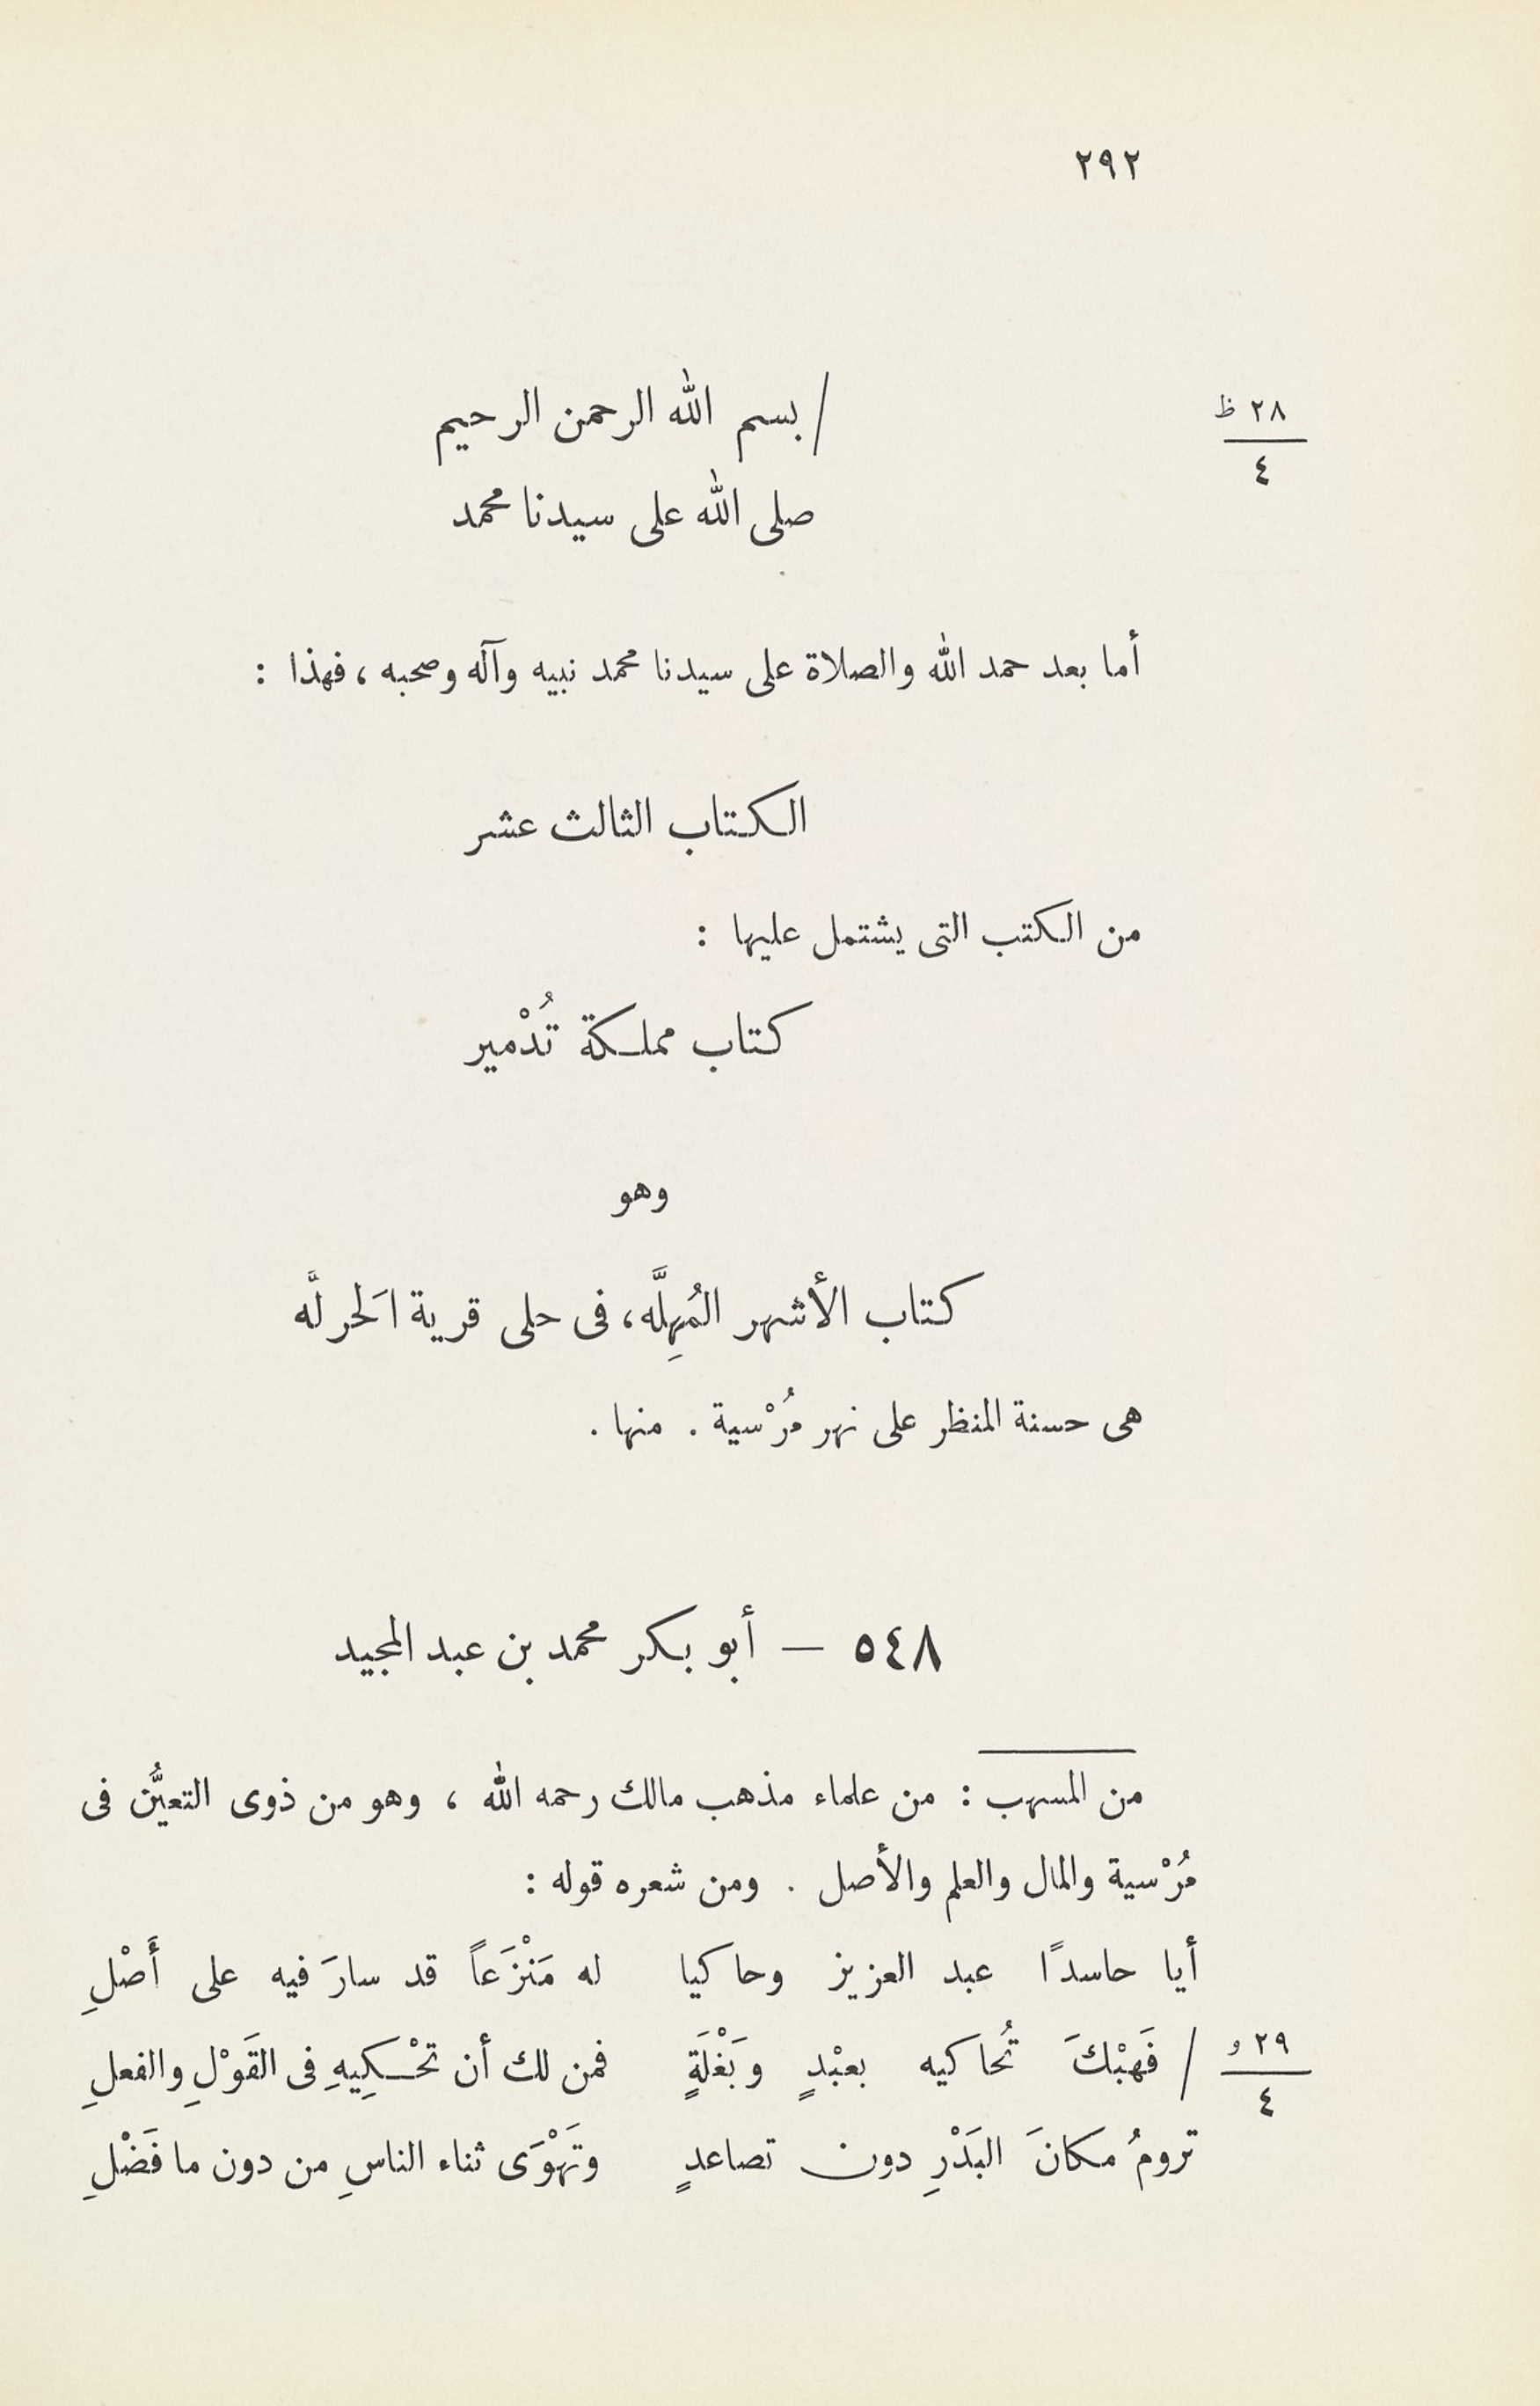 ٢٩٢
٢٨ ظ
٤
/ بسم الله الرحمن الرحيم
صلى الله على سيدنا محمد
أما بعد حمد الله والصلاة على سيدنا محمد نبيه وآله وصحبه ، فهذا :
الكتاب الثالث عشر
من الكتب التى يشتمل عليها :
كتاب مملكة تُدْمير
وهو
كتاب الأشهر المُهِلَّه ، فى حلى قرية الَحرلَّه
هى حسنة المنظر على نهر مُرْسية . منها .
٥٤٨ – أبو بكر محمد بن عبد المجيد
من المسهب : من علماء مذهب مالك رحمه الله ، وهو من ذوى التعيُّن فى
مُرْسية والمال والعلم والأصل . ومن شعره قوله :
أيا حاسدًا عبد العزيز وحاكيا له مَنْزَعاً قد سارَ فيه على أَصْلِ
٢٩ و
٤
/ فَهبْكَ تُحاكيه بعبْدٍ وبَغْلَةٍ فمن لك أن تحْكِيهِ فى القَوْلِ والفعلِ
ترومُ مكانَ البَدْرِ دون تصاعدٍ وتَهْوَى ثناء الناسِ من دون ما فَضْلِ